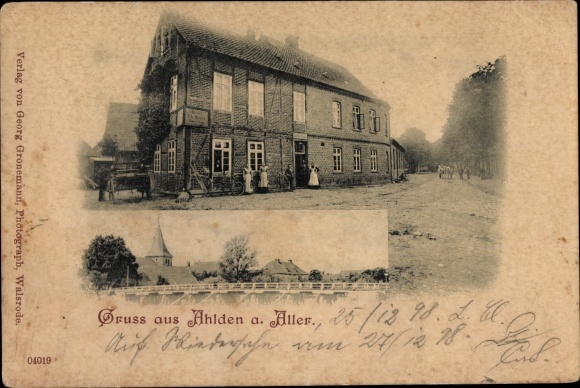 Verlag von Georg Gronemann, Photograph, Walsrode.
Gruss aus Ahlden a. Aller.
25/12 98.
Auf Wiedersehn am 27/12 98.
04019